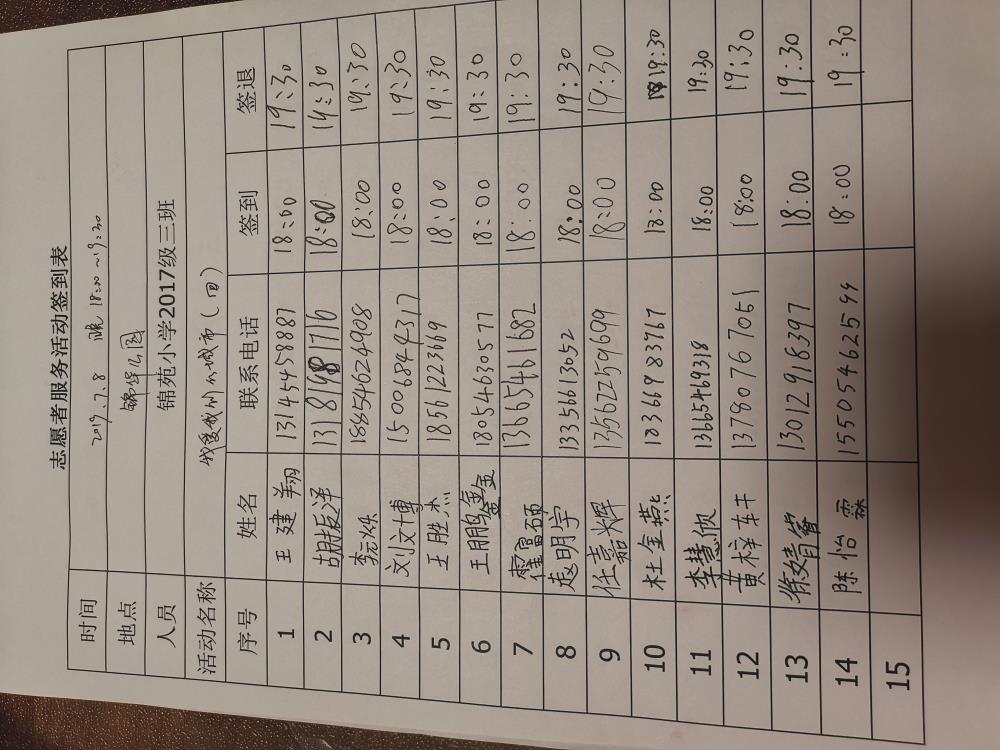 志愿者服务活动签到表
时间 2019.7.8 晚 18:00～19:30
地点 锦华公园
人员 锦苑小学2017级三班
活动名称 我爱我的小城市(四)
序号 姓名 联系电话 签到 签退
1 王建翔 13145458887 18:00 19:30
2 13181981716 18:00 19:30
3 18854024908 18:00 19:30
4 刘文博 15006849431 18:00 19:30
5 王胜杰 18561223669 18:00 19:30
6 王鹏鑫 18054630577 18:00 19:30
7 霍富硕 13665461682 18:00 19:30
8 赵明宇 13356613052 18:00 19:30
9 任嘉辉 13562259699 18:00 19:30
10 杜金燕 13366983767 18:00 19:30
11 李慧欣 13665469318 18:00 19:30
12 黄梓轩 13780767051 18:00 19:30
13 徐婧睿 13012918397 18:00 19:30
14 陈怡霖 15505462599 18:00 19:30
15